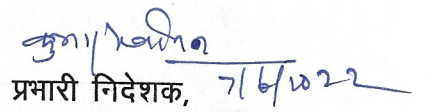 प्रभारी निदेशक, 7/6/2022